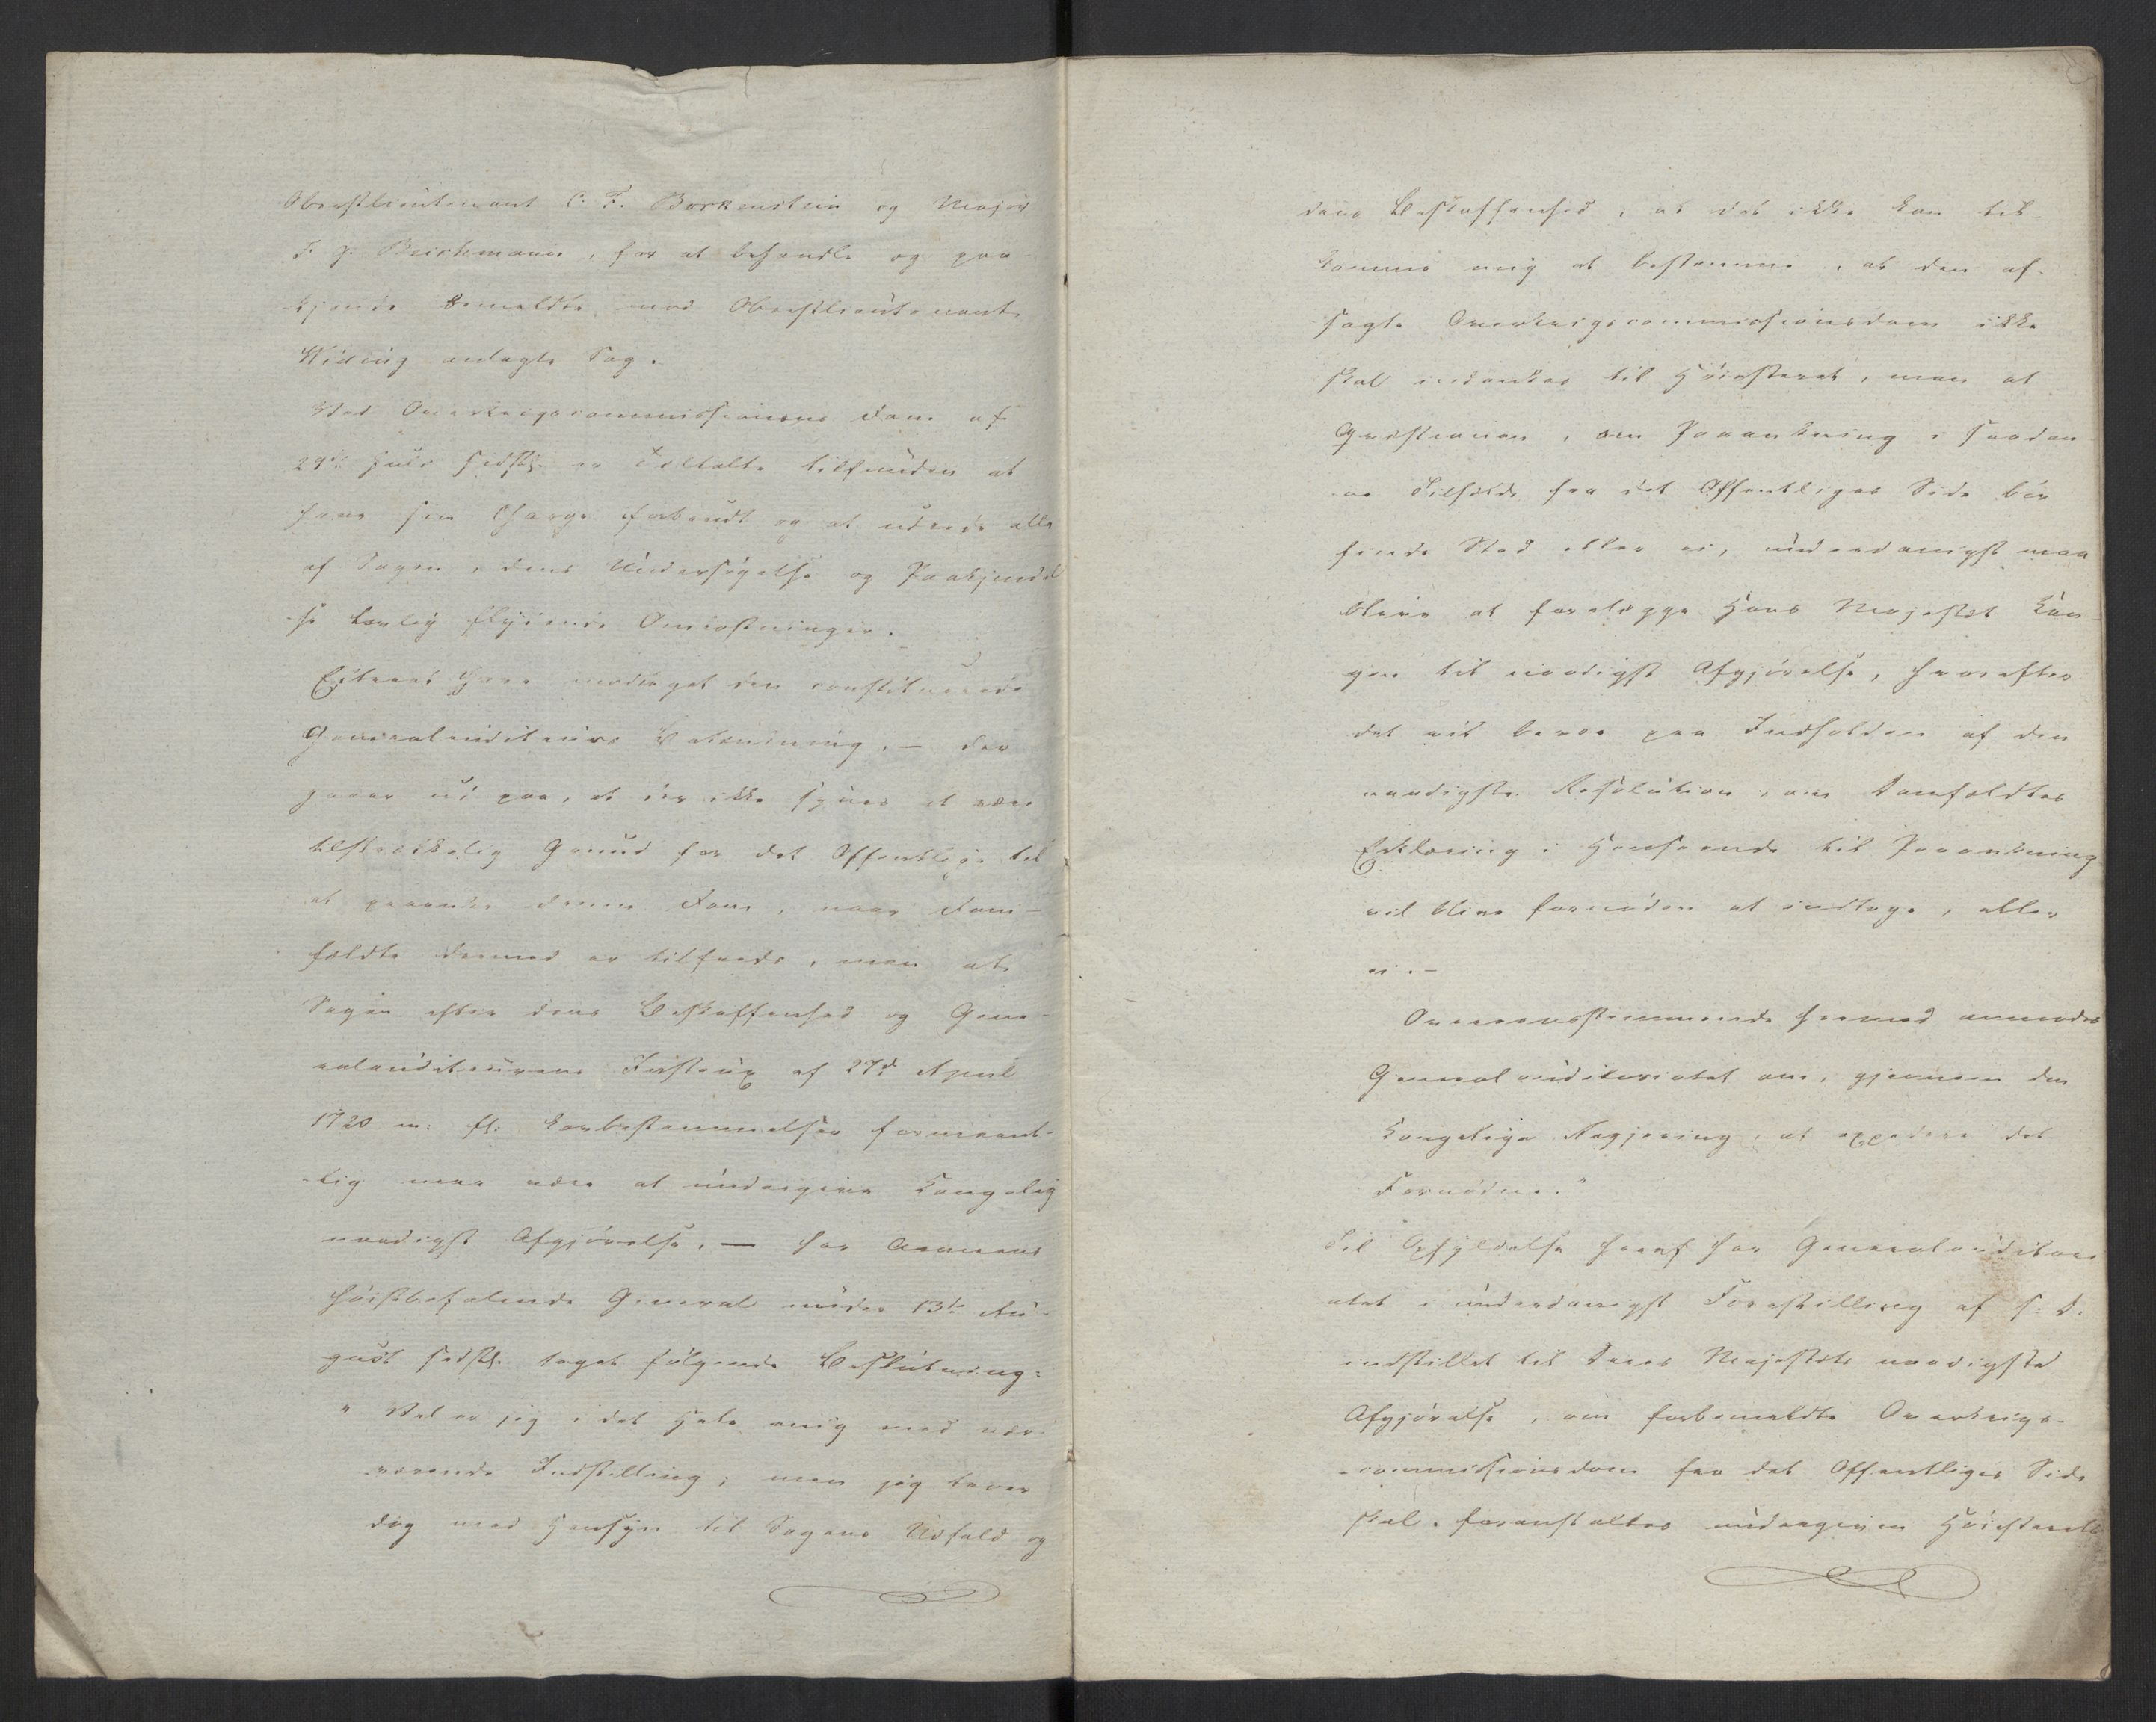 Oberstlieutenant C. F. Borkenstein og Major
F. J. Beichmann, for at behandle og paa-
kjende bemeldte mod Oberstlieutenant
Wiborg anlagte Sag.
Ved Overkrigscommissionens Dom af
29de Juli sidstl. er Tiltalte tilfunden at
have sin Charge forbrudt og at udrede alle
af Sagen, dens Undersøgelse og Paakjendel-
se lovlig flydende Omkostninger.
Efterat have modtaget den constituerede
Generalauditeurs Betænkning, — der
gaaer ud paa, at der ikke synes at være
tilstrækkelig Grund for det Offentlige til
at paaanke denne Dom, naar Dom-
fældte dermed er tilfreds, men at
Sagen efter dens Beskaffenhed og Gene-
ralauditeurens Instrux af 27d April
1720 m: fl: Lovbestemmelser formeent-
lig maa være at undergive Kongelig
naadigst Afgjørelse, — har Armeens
høistbefalende General under 13de Au-
gust sidstl. taget følgende Beslutning:
" Vel er jeg i det Hele enig med nær-
værende Indstilling; men jeg troer
dog med Hensyn til Sagens Udfald og
dens Beskaffenhed, at det ikke kan til-
komme mig at bestemme, at den af-
sagte Overkrigscommissionsdom ikke
skal indankes til Høiesteret, men at
Qvestionen, om Paaankning i saadan-
ne Tilfælde fra det Offentliges Side bør
finde Sted eller ei, underdanigst maa
blive at forelægge Hans Majestæt Kon-
gen til naadigst Afgjørelse, hvorefter
det vil beroe paa Indholdet af den
naadigste Resolution, om Domfældtes
Erklæring i Henseende til Paaankning
vil blive fornøden at indtage, eller
ei. —
Overeensstemmende hermed anmodes
Generalauditoriatet om, gjennem den
Kongelige Regjering, at expedere det
Fornødne."
Til Opfyldelse heraf har Generalauditori-
atet i underdanigst Forestilling af s: D.
indstillet til Deres Majestæts naadigste
Afgjørelse, om forbemeldte Overkrigs-
commissionsdom fra det Offentliges Side
skal foranstaltes undergiven Høiesterets